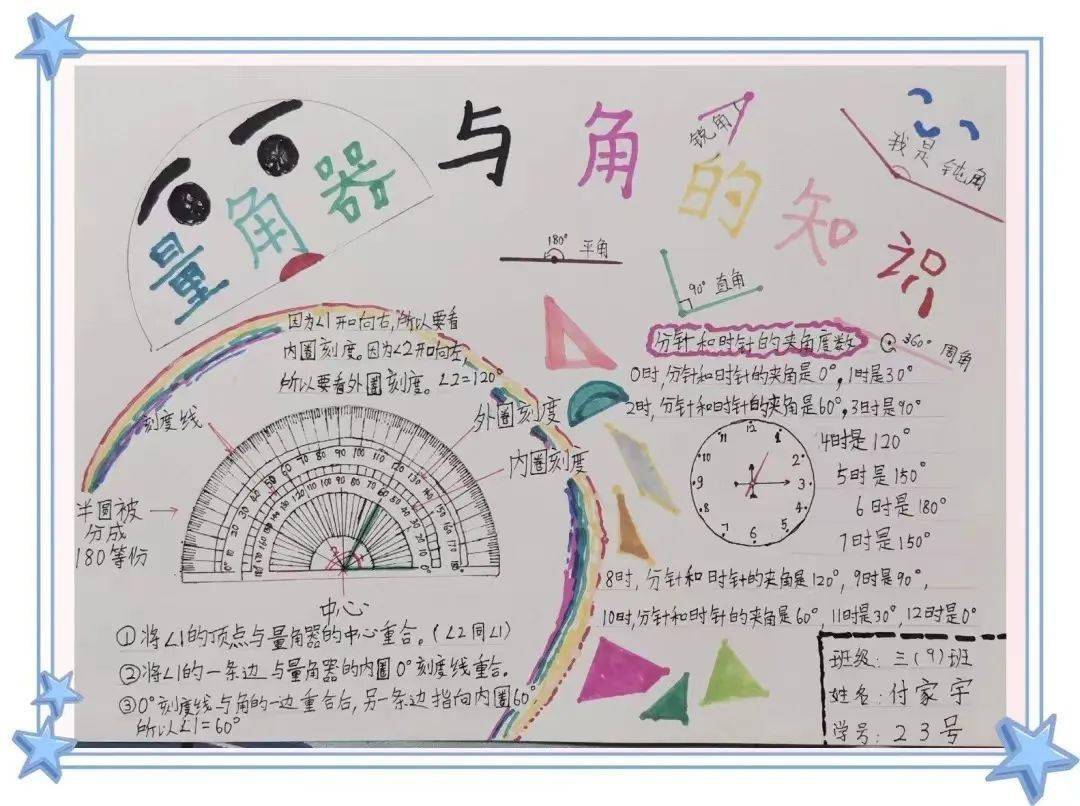 量角器与角的知识
锐角
我是钝角
180° 平角
90° 直角
360° 周角
因为∠1开口向右,所以要看
内圈刻度。因为∠2开口向左,
所以要看外圈刻度。∠2=120°
刻度线
外圈刻度
内圈刻度
半圆被
分成
180等份
中心
①将∠1的顶点与量角器的中心重合。(∠2同∠1)
②将∠1的一条边与量角器的内圈0°刻度线重合。
③0°刻度线与角的一边重合后,另一条边指向内圈60°,
所以∠1=60°
分针和时针的夹角度数
0时,分针和时针的夹角是0°,1时是30°
2时,分针和时针的夹角是60°,3时是90°
4时是120°
5时是150°
6时是180°
7时是150°
12
1
2
3
4
5
6
7
8
9
10
11
8时,分针和时针的夹角是120°,9时是90°,
10时,分针和时针的夹角是60°,11时是30°,12时是0°
班级:三(9)班
姓名:付家宇
学号:23号